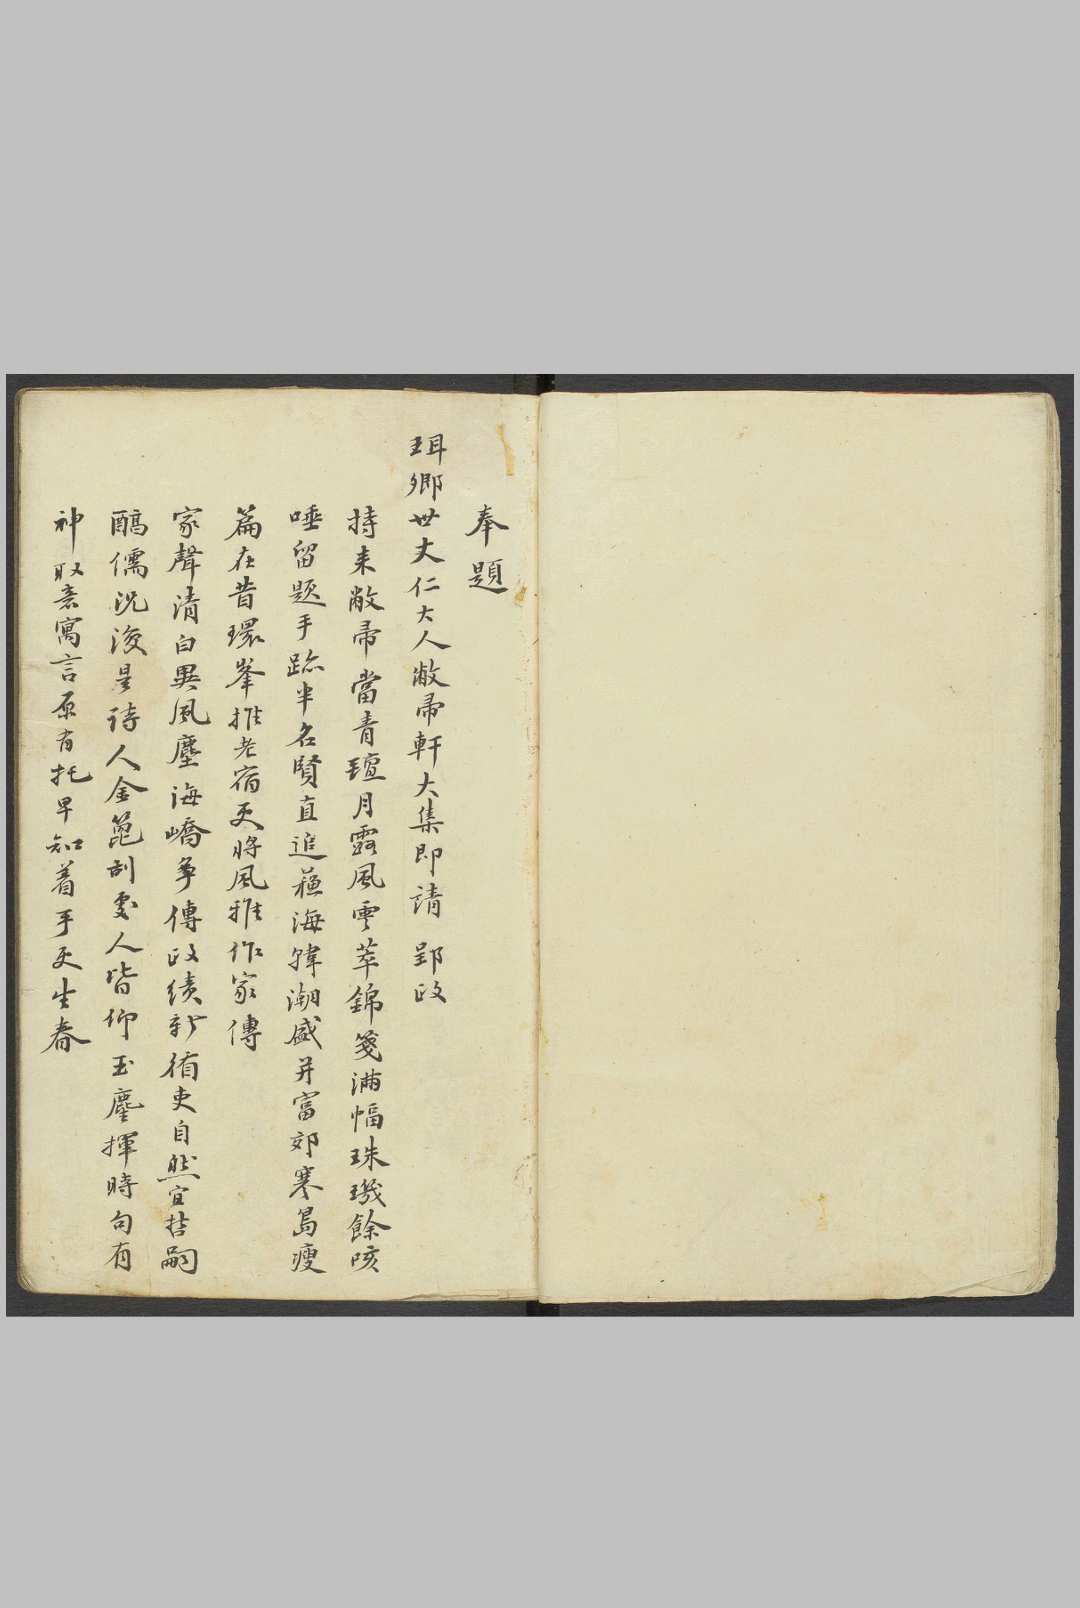 奉題
珥卿世丈仁大人敝帚軒大集即請 郢政
持来敝帚當青瑄月露風雲萃錦箋滿幅珠璣餘咳
唾留題手跡半名賢直追蘓海韓潮盛并富郊寒島瘦
篇在昔環峯推老宿更將風雅作家傳
家聲清白異風塵海嶠争傳政績新循吏自然宜喆嗣
醇儒況復是詩人金篦刮處人皆仰玉麈揮時句有
神取裛寓言原有托早知着手更生春